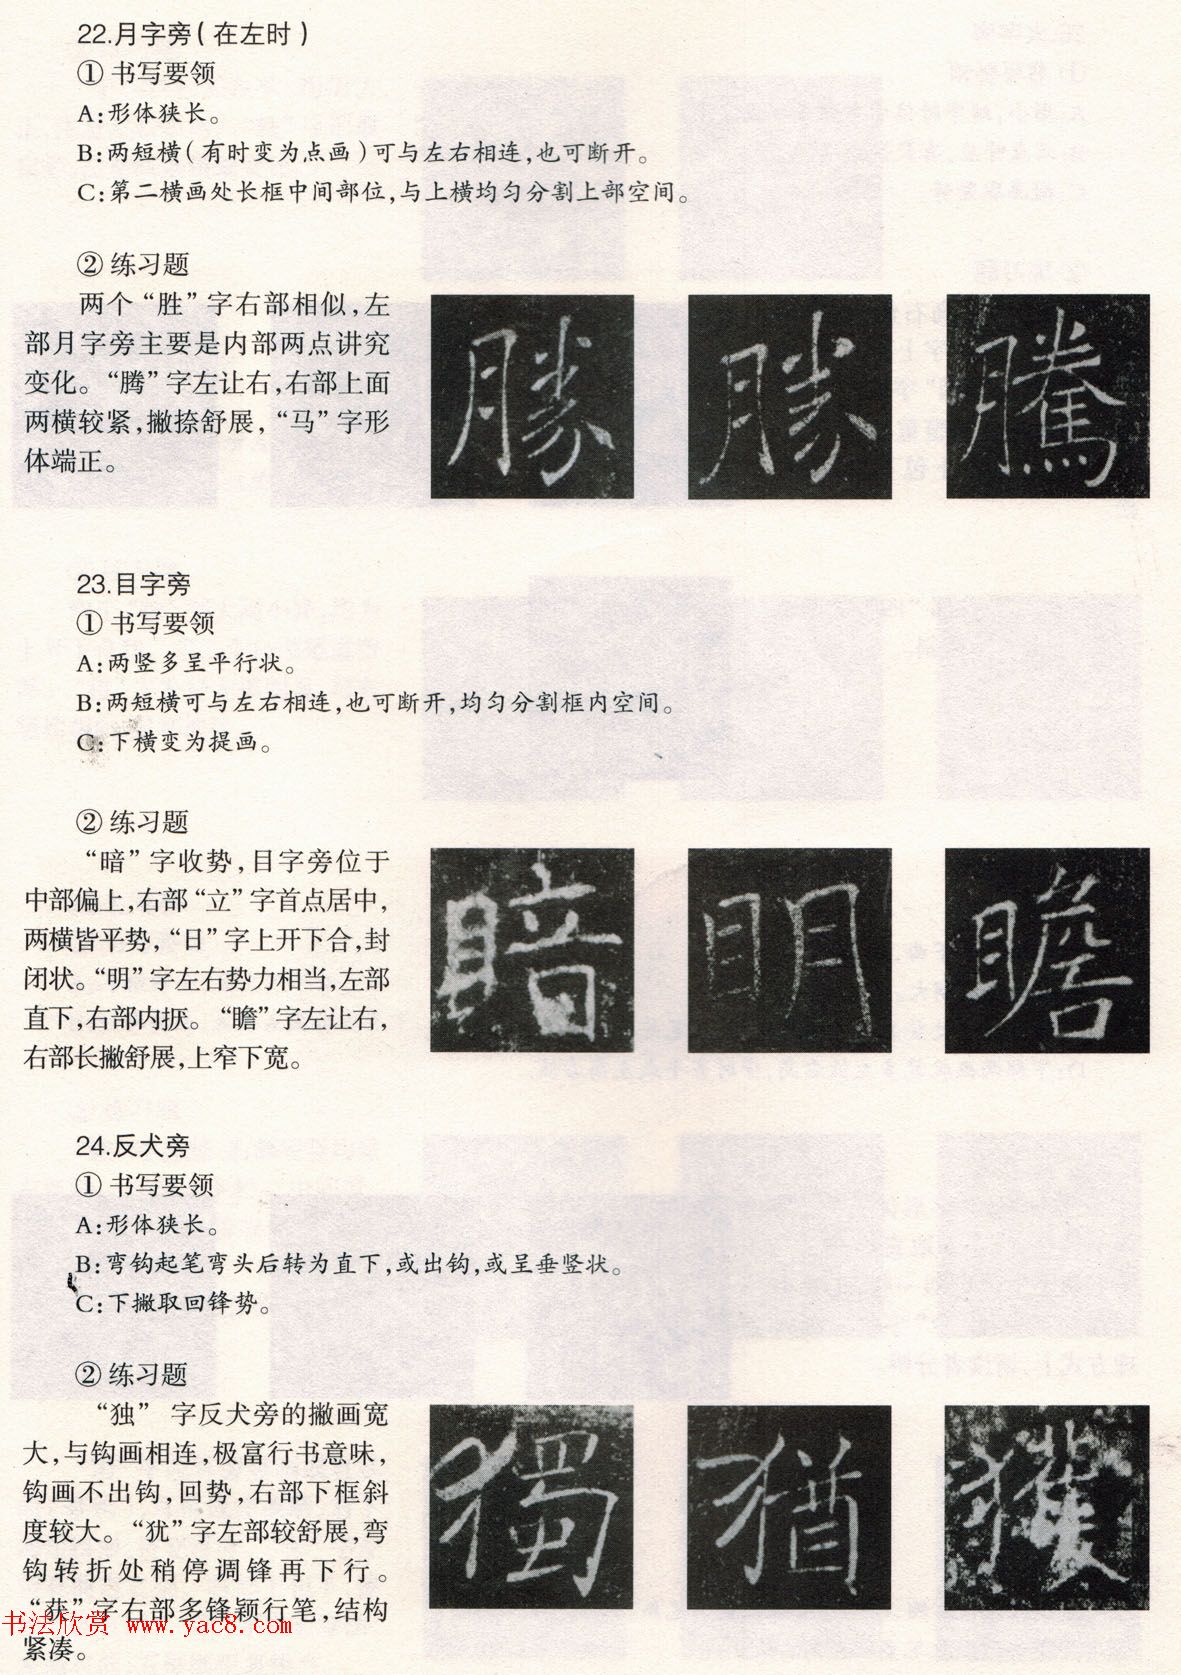 22.月字旁(在左时)
① 书写要领
A:形体狭长。
B:两短横(有时变为点画)可与左右相连,也可断开。
C:第二横画处长框中间部位,与上横均匀分割上部空间。
② 练习题
两个“胜”字右部相似,左
部月字旁主要是内部两点讲究
变化。“腾”字左让右,右部上面
两横较紧,撇捺舒展,“马”字形
体端正。
勝 勝 騰
23.目字旁
① 书写要领
A:两竖多呈平行状。
B:两短横可与左右相连,也可断开,均匀分割框内空间。
C:下横变为提画。
② 练习题
“暗”字收势,目字旁位于
中部偏上,右部“立”字首点居中,
两横皆平势,“日”字上开下合,封
闭状。“明”字左右势力相当,左部
直下,右部内抠。“瞻”字左让右,
右部长撇舒展,上窄下宽。
暗 明 瞻
24.反犬旁
① 书写要领
A:形体狭长。
B:弯钩起笔弯头后转为直下,或出钩,或呈垂竖状。
C:下撇取回锋势。
② 练习题
“独” 字反犬旁的撇画宽
大,与钩画相连,极富行书意味,
钩画不出钩,回势,右部下框斜
度较大。“犹”字左部较舒展,弯
钩转折处稍停调锋再下行。
“获”字右部多锋颖行笔,结构
紧凑。
獨 猶 獲
书法欣赏 www.yac8.com